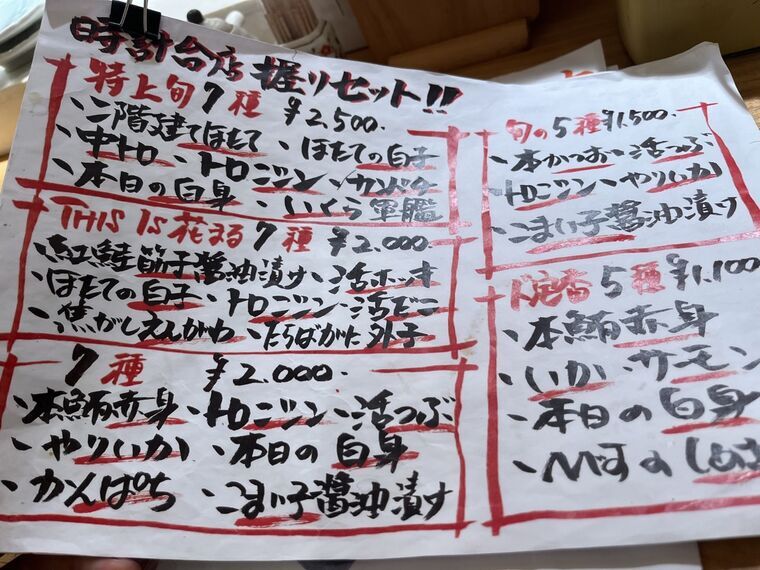 時計台店 握りセット!!
特上旬7種 ¥2,500.
・二階建てほたて ・ほたての白子
・中トロ ・トロニシン ・カンパチ
・本日の白身 ・いくら軍艦
THIS IS 花まる 7種 ¥2,000.
・紅鮭筋子醤油漬け ・活ホッキ
・ほたての白子 ・トロニシン ・活だこ
・焦がしえんがわ ・たらばがに外子
7種 ¥2.000.
・本鮪赤身 ・トロニシン ・活つぶ
・やりいか ・本日の白身
・かんぱち ・こまい子醤油漬け
旬の5種 ¥1,500.
・本かつお ・活つぶ
・トロニシン ・やりいか
・こまい子醤油漬け
ド定番5種 ¥1,100
・本鮪赤身
・いか ・サーモン
・本日の白身